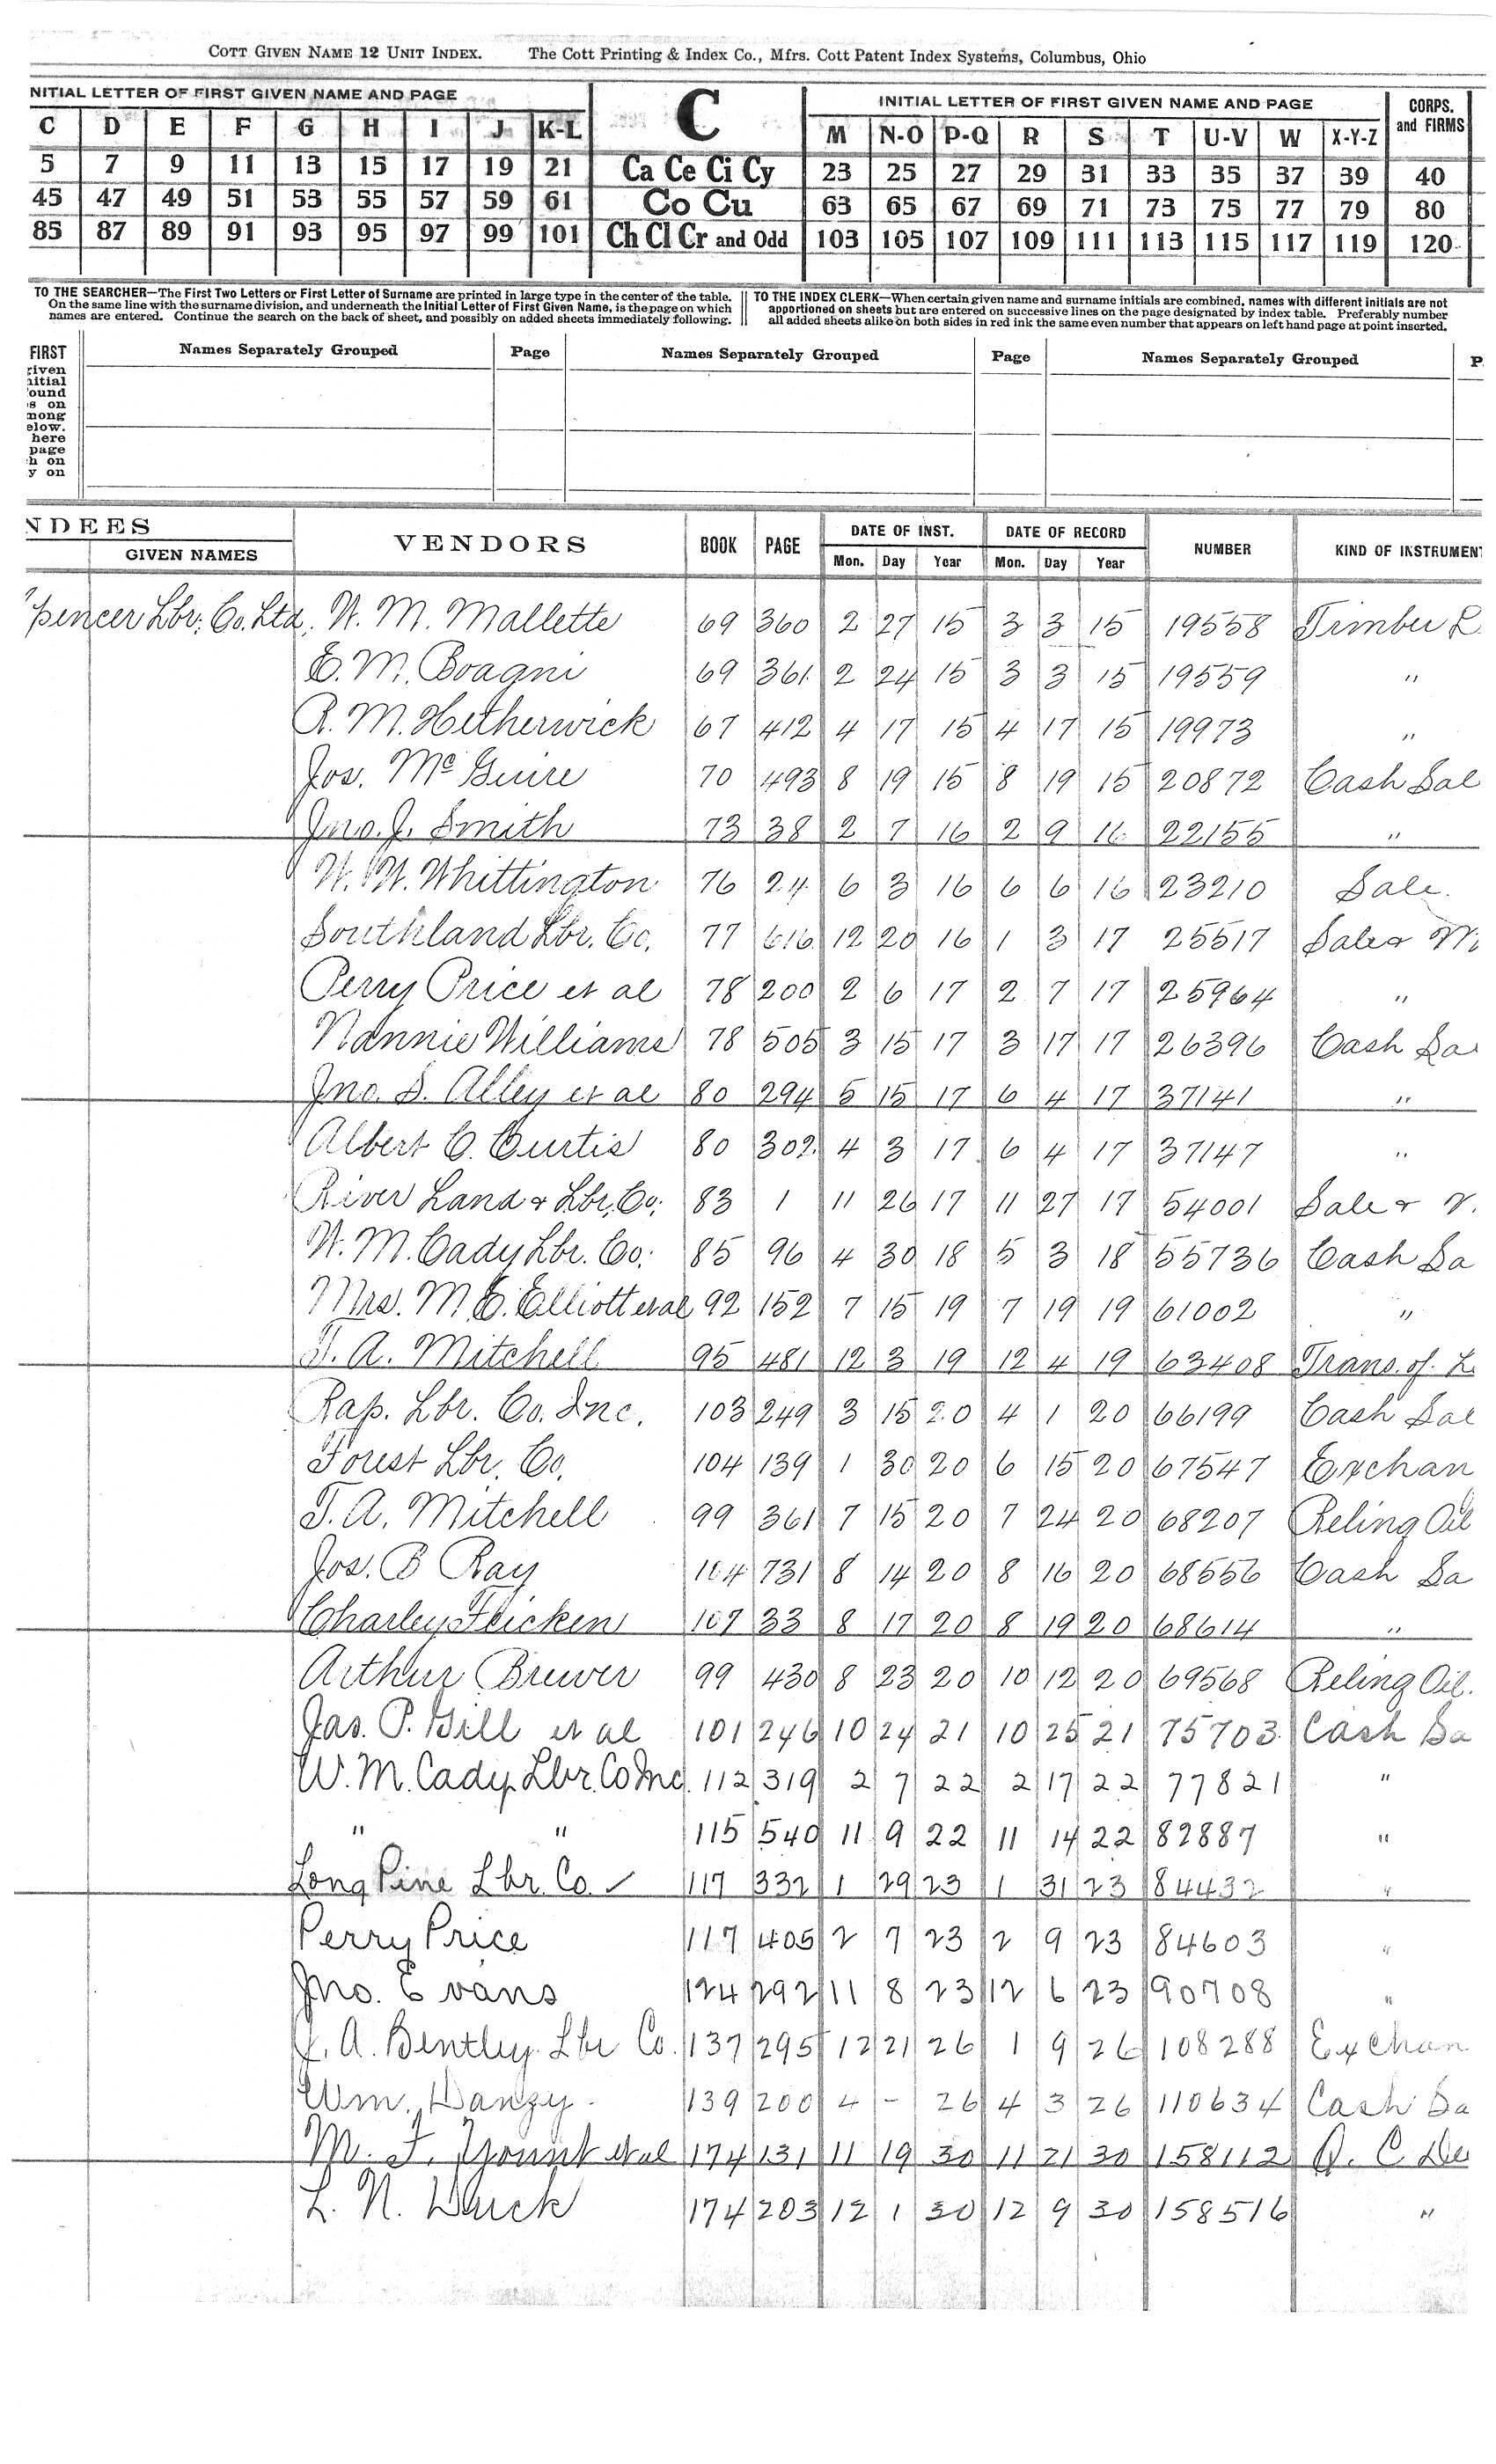 COTT GIVEN NAME 12 UNIT INDEX. The Cott Printing & Index Co., Mfrs. Cott Patent Index Systems, Columbus, Ohio
NITIAL LETTER OF FIRST GIVEN NAME AND PAGE C INITIAL LETTER OF FIRST GIVEN NAME AND PAGE CORPS. and FIRMS
C D E F G H I J K-L M N-O P-Q R S T U-V W X-Y-Z
5 7 9 11 13 15 17 19 21 Ca Ce Ci Cy 23 25 27 29 31 33 35 37 39 40
45 47 49 51 53 55 57 59 61 Co Cu 63 65 67 69 71 73 75 77 79 80
85 87 89 91 93 95 97 99 101 Ch Cl Cr and Odd 103 105 107 109 111 113 115 117 119 120
TO THE SEARCHER—The First Two Letters or First Letter of Surname are printed in large type in the center of the table.
On the same line with the surname division, and underneath the Initial Letter of First Given Name, is the page on which
names are entered. Continue the search on the back of sheet, and possibly on added sheets immediately following.
TO THE INDEX CLERK—When certain given name and surname initials are combined, names with different initials are not
apportioned on sheets but are entered on successive lines on the page designated by index table. Preferably number
all added sheets alike on both sides in red ink the same even number that appears on left hand page at point inserted.
FIRST Names Separately Grouped Page Names Separately Grouped Page Names Separately Grouped P
given
nitial
ound
s on
mong
elow.
here
page
h on
y on
NDEES VENDORS BOOK PAGE DATE OF INST. DATE OF RECORD NUMBER KIND OF INSTRUMENT
GIVEN NAMES Mon. Day Year Mon. Day Year
Spencer Lbr. Co. Ltd. W. M. Mallette 69 360 2 27 15 3 3 15 19558 Timber L
E. M. Boagni 69 361 2 24 15 3 3 15 19559 "
R. M. Hetherwick 67 412 4 17 15 4 17 15 19973 "
Jos. McGuire 70 493 8 19 15 8 19 15 20872 Cash Sal
Jno. J. Smith 73 38 2 7 16 2 9 16 22155 "
W. W. Whittington 76 24 6 3 16 6 6 16 23210 Sale.
Southland Lbr. Co. 77 616 12 20 16 1 3 17 25517 Sale &
Perry Price et al 78 200 2 6 17 2 7 17 25964 "
Nannie Williams 78 505 3 15 17 3 17 17 26396 Cash Sa
Jno. S. Alley et al 80 294 5 15 17 6 4 17 37141 "
Albert C. Curtis 80 302 4 3 17 6 4 17 37147 "
River Land & Lbr. Co. 83 1 11 26 17 11 27 17 54001 Sale &
W. M. Cady Lbr. Co. 85 96 4 30 18 5 3 18 55736 Cash Sa
Mrs. M. E. Elliott et al 92 152 7 15 19 7 19 19 61002 "
T. A. Mitchell 95 481 12 3 19 12 4 19 63408 Trans. of L
Rap. Lbr. Co. Inc. 103 249 3 15 20 4 1 20 66199 Cash Sal
Forest Lbr. Co. 104 139 1 30 20 6 15 20 67547 Exchan
T. A. Mitchell 99 361 7 15 20 7 24 20 68207 Reling Oil
Jos. B Ray 104 731 8 14 20 8 16 20 68556 Cash Sa
Charley Flicken 107 33 8 17 20 8 19 20 68614 "
Arthur Brewer 99 430 8 23 20 10 12 20 69568 Reling Oil.
Jas. P. Gill et al 101 246 10 24 21 10 25 21 75703 Cash Sa
W. M. Cady Lbr. Co Inc. 112 319 2 7 22 2 17 22 77821 "
" " 115 540 11 9 22 11 14 22 82887 "
Long Pine Lbr. Co. ✓ 117 332 1 29 23 1 31 23 84432 "
Perry Price 117 405 2 7 23 2 9 23 84603 "
Jno. Evans 124 292 11 8 23 12 6 23 90708 "
J. A. Bentley Lbr Co. 137 295 12 21 26 1 9 26 108288 Exchan
Wm. Danzy 139 200 4 - 26 4 3 26 110634 Cash Sa
M. F. Yount et al 174 131 11 19 30 11 21 30 158112 Q. C De
L. N. 174 203 12 1 30 12 9 30 158516 "